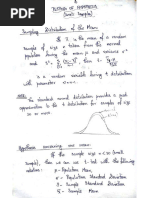 TESTING OF HYPOTHESIS
(Small Samples)
Sampling Distribution of the Mean
If x̄ is the mean of a random
sample of size n taken from the normal
population having the mean μ and variance σ²
and
is a random variable having t distribution
with parameter
NOTE
The standard normal distribution provides a good
approximation to the t distribution for samples of size
30 or more
Hypothesis concerning one mean:
If the sample size n<30 (i.e. small
Sample), then we use t-test with the following
notations:
μ – Population Mean
σ – Population Standard Deviation
x̄ – Sample Mean
S – Sample Standard Deviation
n – Sample Size